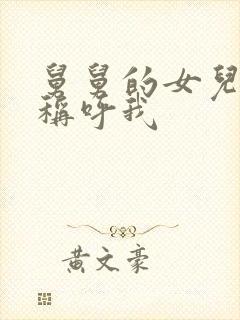 舅舅的女兒
稱呼我
黃文豪